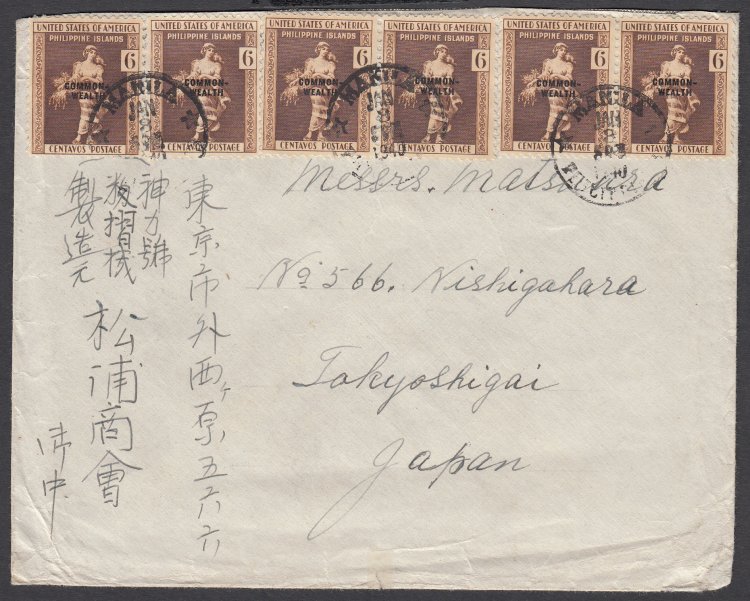 UNITED STATES OF AMERICA
PHILIPPINE ISLANDS
6
COMMON-
WEALTH
CENTAVOS POSTAGE
UNITED STATES OF AMERICA
PHILIPPINE ISLANDS
6
COMMON-
WEALTH
CENTAVOS POSTAGE
UNITED STATES OF AMERICA
PHILIPPINE ISLANDS
6
COMMON-
WEALTH
CENTAVOS POSTAGE
UNITED STATES OF AMERICA
PHILIPPINE ISLANDS
6
COMMON-
WEALTH
CENTAVOS POSTAGE
UNITED STATES OF AMERICA
PHILIPPINE ISLANDS
6
COMMON-
WEALTH
CENTAVOS POSTAGE
UNITED STATES OF AMERICA
PHILIPPINE ISLANDS
6
COMMON-
WEALTH
CENTAVOS POSTAGE
MANILA
JAN
8
MANILA
JAN
8
1940
MANILA
JAN
8
1940
Messrs. Matsuura
No 566. Nishigahara
Tokyoshigai
Japan
東京市外西ヶ原五六六
神力號
摺機
製造元
松浦商會
御中